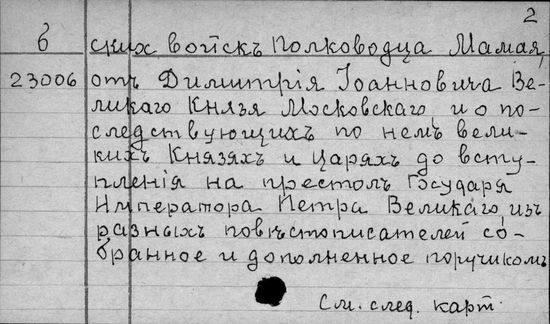 2
в скихъ войскъ Полководца Мамая,
23006 отъ Димитрія Іоанновича Ве-
ликаго Князя Московскаго, и о по-
следствующихъ по немъ вели-
кихъ Князяхъ и Царяхъ до всту-
пленія на престолъ Государя
Императора Петра Великаго, изъ
разныхъ повѣстописателей со-
бранное и дополненное поручикомъ
См. след. карт.